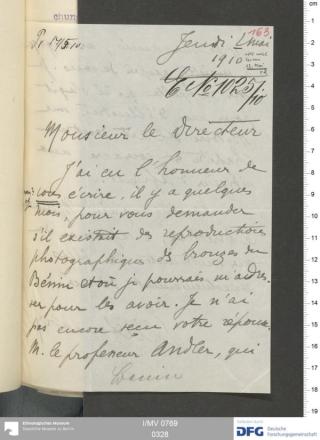 163
Jeudi mai
1910
Pr 17/5/10.
E No 1025/10
Monsieur le directeur
J'ai eu l'honneur de
vous écrire, il y a quelques
mois, pour vous demander
s'il existait des reproductions
photographiques des bronzes du
Bénin et où je pourrais m'adres-
ser pour les avoir. Je n'ai
pas encore reçu votre réponse.
M. le professeur Andler, qui
Benin
Ethnologisches Museum
Staatliche Museen zu Berlin
I/MV 0769
0328
DFG
Deutsche
Forschungsgemeinschaft